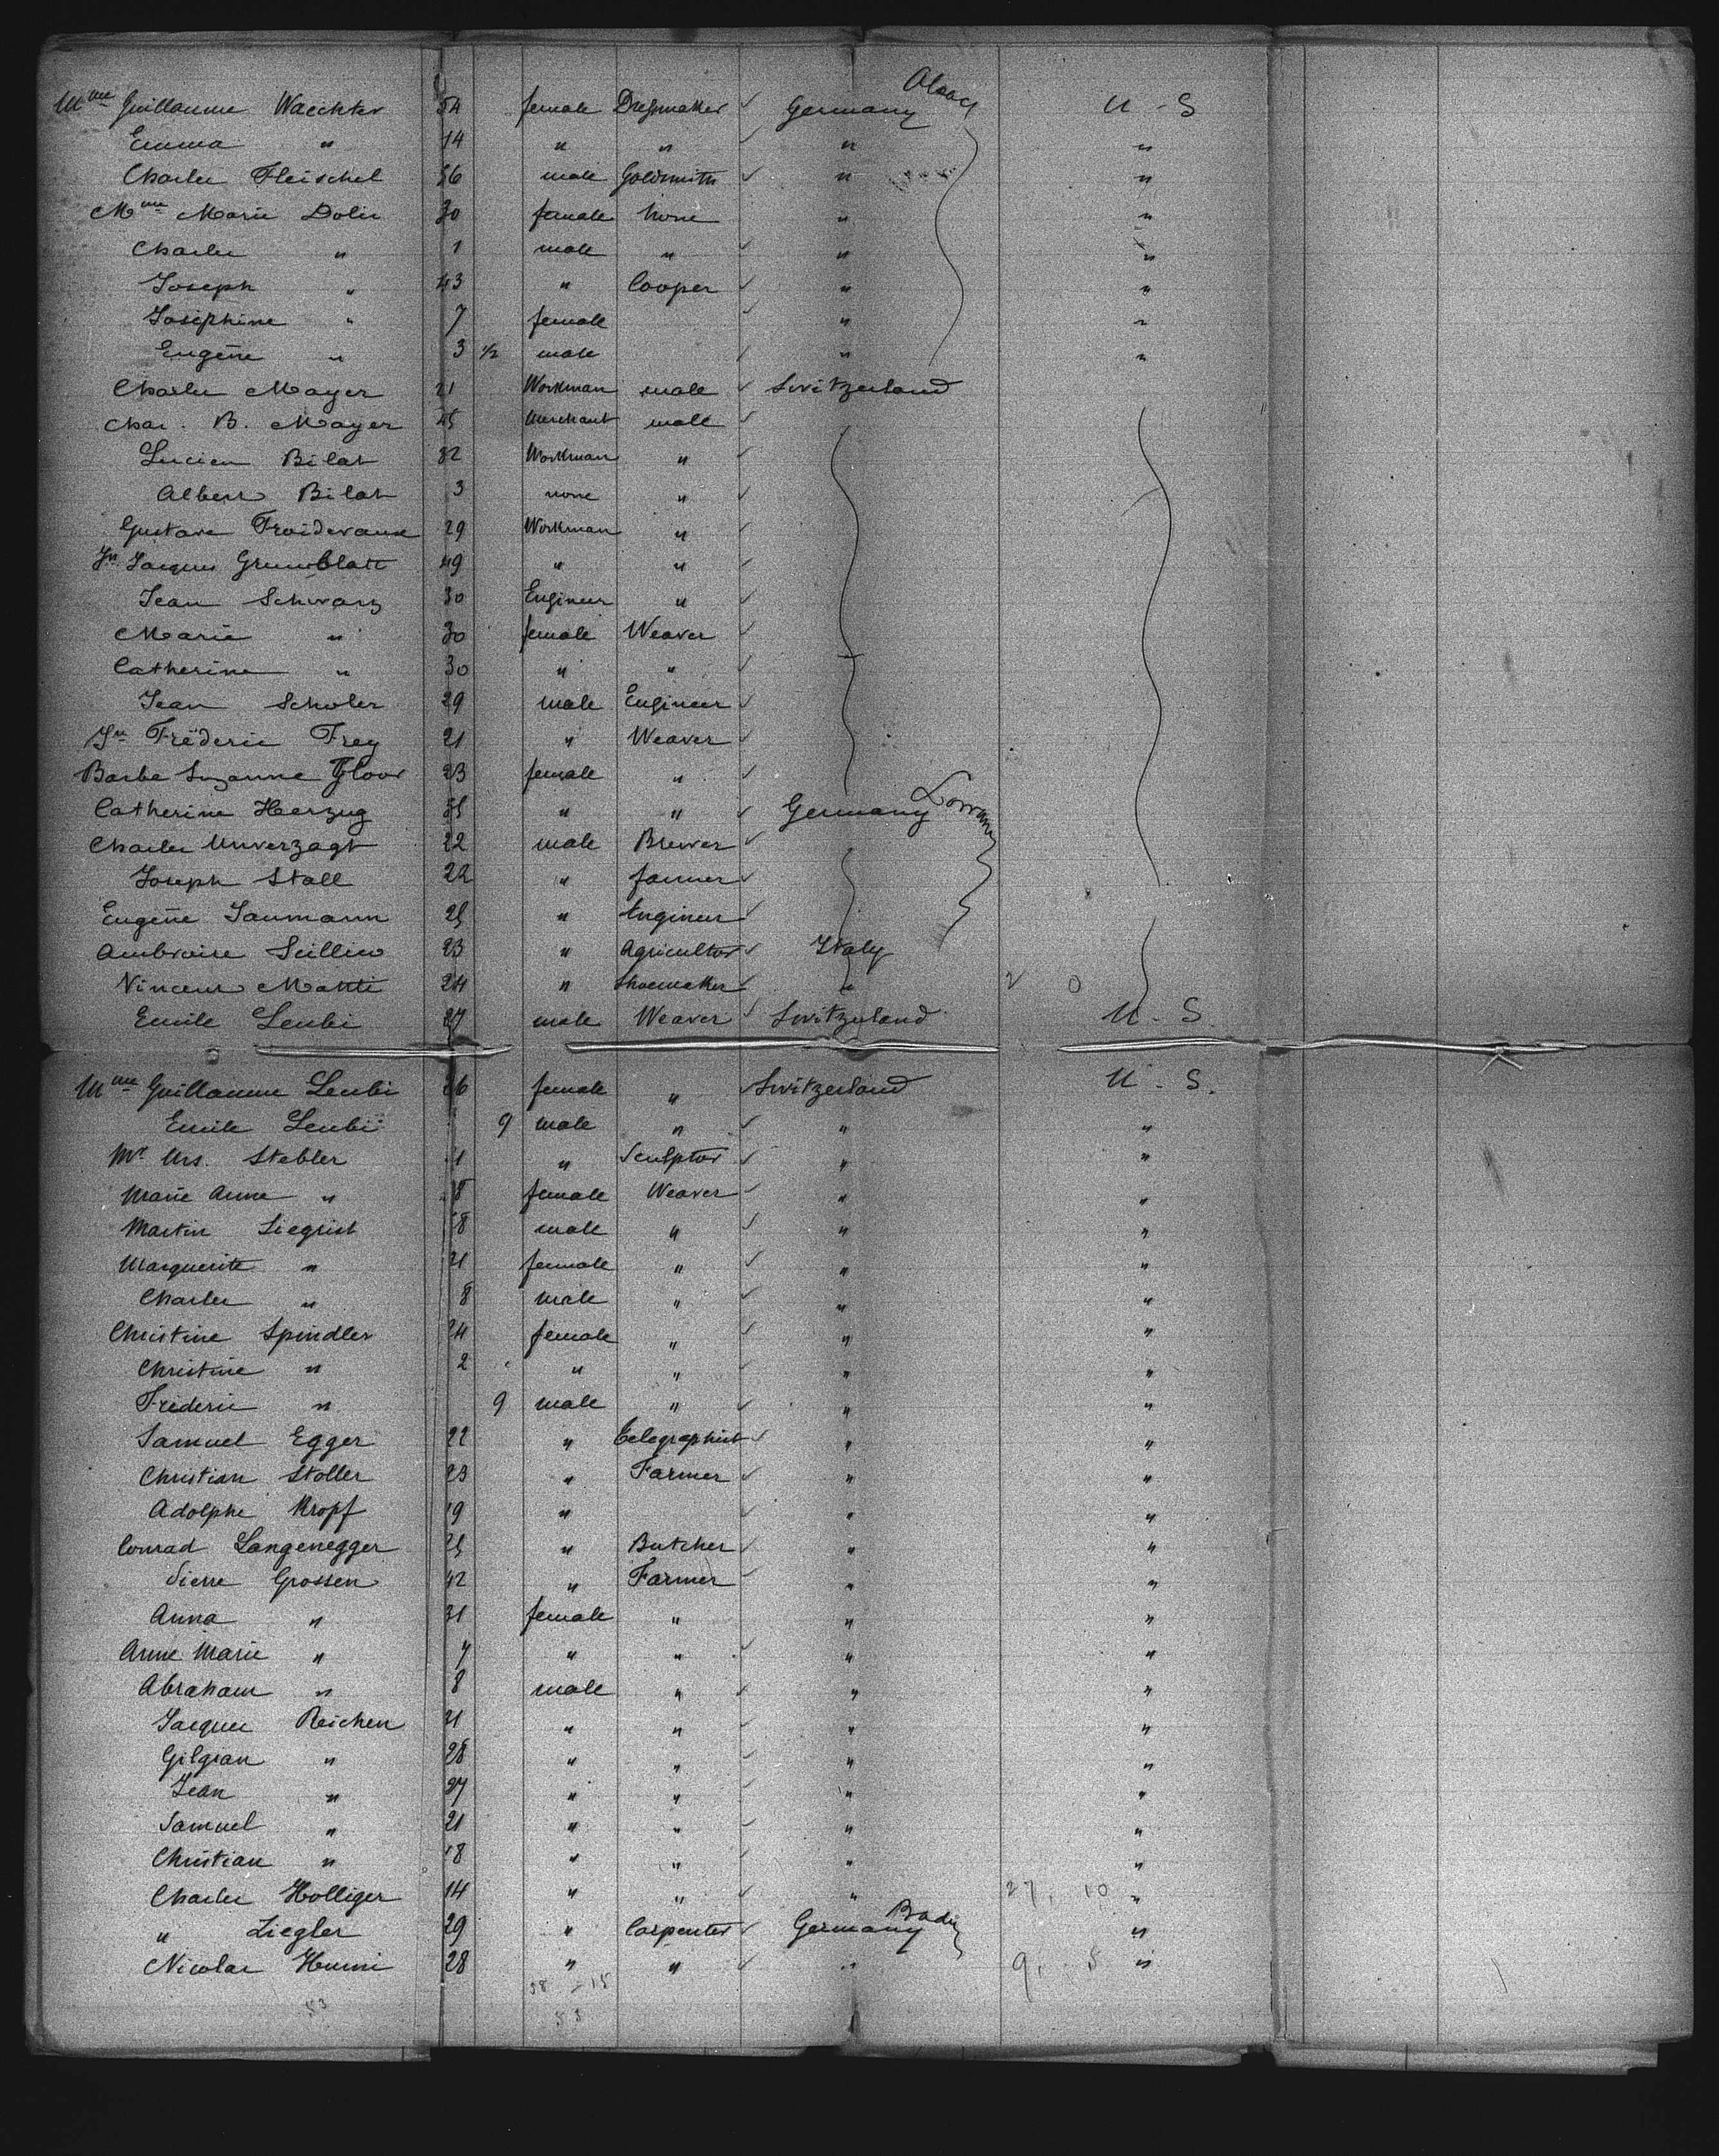 Mme Guillaume Waechter 54 female Dressmaker ✓ Germany Alsace U - S
Emma " 14 " " ✓ " "
Charles Fleischel 56 male Goldsmith ✓ " "
Mme Marie Dolis 30 female None " "
Charles " 1 male " ✓ " "
Joseph " 43 " Cooper ✓ " "
Joséphine " 7 female ✓ " "
Eugène " 3 1/2 male ✓ " "
Charles Mayer 21 Workman male ✓ Switzerland
Char. B. Mayer 45 Merchant male ✓
Lucien Bilat 32 Workman " ✓
Albert Bilat 3 none " ✓
Gustave Froidevaux 29 Workman " ✓
Jn Jacques Grumblatt 49 " " ✓
Jean Schwarz 30 Engineer " ✓
Marie " 30 female Weaver ✓
Catherine " 30 " " ✓
Jean Schwler 29 male Engineer ✓
Jn Fréderic Frey 21 " Weaver ✓
Barbe Suzanne Gloor 23 female " ✓
Catherine Herzug " " ✓ Germany Lorraine
Charles Unverzagt 22 male Brewer ✓
Joseph Stall 22 " farmer ✓
Eugène Saumann 25 " Engineer ✓
Ambroise 23 " Agricultor ✓ Italy
Vincent Matti 24 " Shoemaker ✓ " 2 0
Emile Leubi 27 male Weaver ✓ Switzerland U - S.
Mme Guillaume Leubi 26 female " ✓ Switzerland U - S.
Emile Leubi 9 male " ✓ " "
Mr Urs. Stebler " Sculptor ✓ " "
Marie Anne " female Weaver ✓ " "
Martin Siegrist male " ✓ " "
Marguerite " female " ✓ " "
Charles " 8 male " ✓ " "
Christine Spindler 24 female " ✓ " "
Christine " 2 " " ✓ " "
Fréderic " 9 male " ✓ " "
Samuel Egger 22 " telegraphist ✓ " "
Christian Stoller 23 " Farmer ✓ " "
Adolphe Kropf 19 " " "
Conrad Langenegger 25 " Butcher ✓ " "
Pierre Grossen 42 " Farmer ✓ " "
Anna " 31 female " " "
Anne Marie " 7 " " ✓ " "
Abraham " 8 male " ✓ " "
Jacques Reichen 21 " " ✓ " "
Gilgian " 28 " " ✓ " "
Jean " 27 " " ✓ " "
Samuel " 21 " " ✓ " "
Christian " 18 " " ✓ " "
Charles Holliger 14 " " ✓ " 27. 10 "
" Ziegler 29 " Carpenter ✓ Germany Baden "
Nicolas Humi 28 " " ✓ " 9. 5 "
38 - 15
53
53